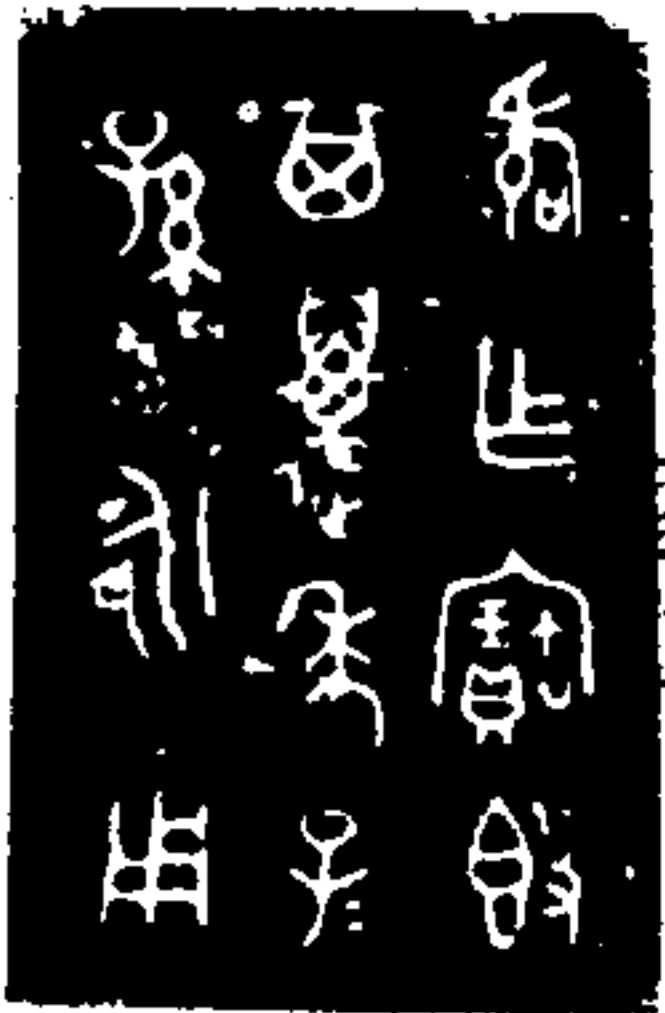 乍寶𣪘
其萬年子=
孫永用